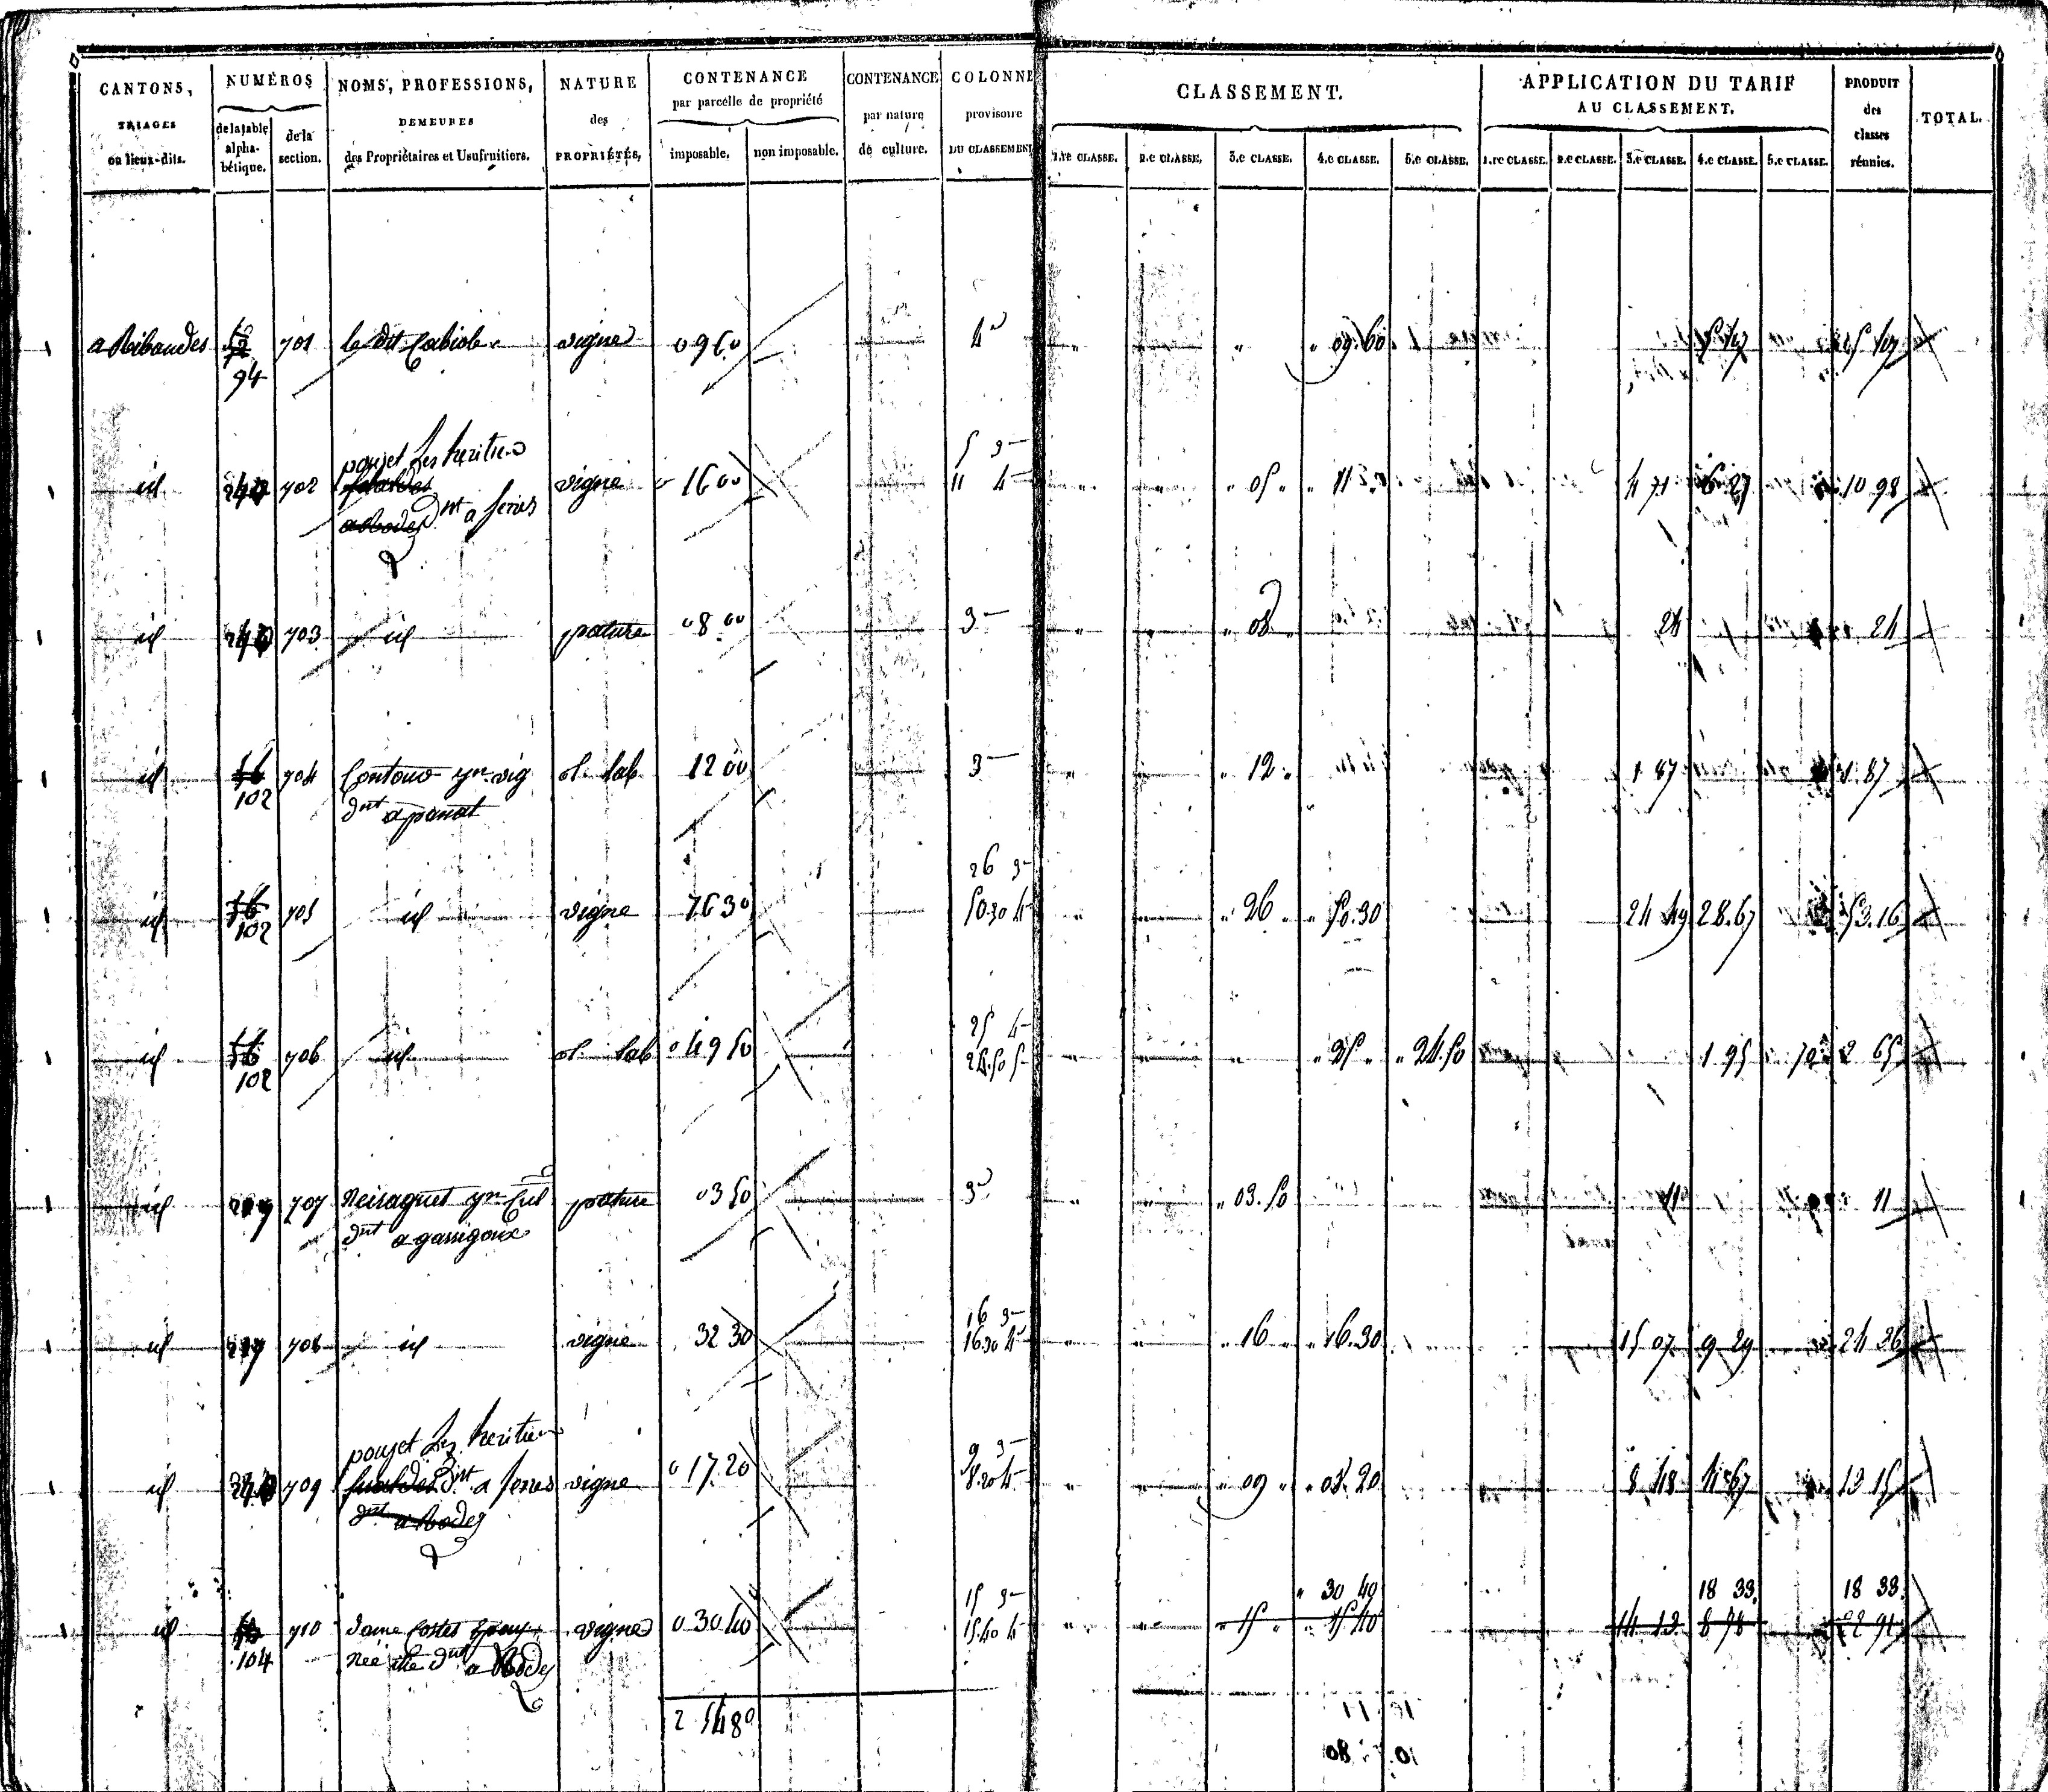 CANTONS, TRIAGES ou lieux-dits. NUMÉROS de la table alphabétique. de la section. NOMS, PROFESSIONS, DEMEURES des Propriétaires et Usufruitiers. NATURE des PROPRIÉTÉS. CONTENANCE par parcelle de propriété imposable. non imposable. CONTENANCE par nature de culture. COLONNE provisoire DU CLASSEMENT CLASSEMENT. 1.re CLASSE. 2.e CLASSE. 3.e CLASSE. 4.e CLASSE. 5.e CLASSE. APPLICATION DU TARIF AU CLASSEMENT. 1.re CLASSE. 2.e CLASSE. 3.e CLASSE. 4.e CLASSE. 5.e CLASSE. PRODUIT des classes réunies. TOTAL.
a Ribaudes 701 le dit Cabiole vigne 09 60 4e 09.60 5 47 05 47
94
poujet Les heritiers 5 3
id 240 702 vigne 16 00 11 4 05 11 4 71 6 27 10 98
a Rodez dnt a ferres
id 240 703 id pature 08 00 3 08 24 24
id 56 704 Contous yn vig ol. lab 12 00 3 12 1 87 1 87
102 dnt a panat
26 3
id 56 705 id vigne 76 30 50.30 4 26 50.30 24 49 28.67 53.16
102
25 4
id 56 706 id ol. lab 0 49 50 24.50 5 25 24.50 1 95 70 2 65
102
id 707 Neiraguet yn Cul pature 03 50 3e 03.50 11 11
dnt a garrigoux
16 3
id 708 id vigne 32 30 16.30 4e 16 16.30 15 07 9 29 24 36
poujet Les heritiers 9 3
id 240 709 dnt a ferres vigne 0 17.20 8.20 4 09 08.20 8 48 4 67 13 15
dnt a Rodez
15 3 30 40 18 33 18 33
id 710 dame Costes vigne 0 30 40 15.40 4 15 15 40 14 13 8 78 22 91
104 née dnt a Rodez
2 54 80